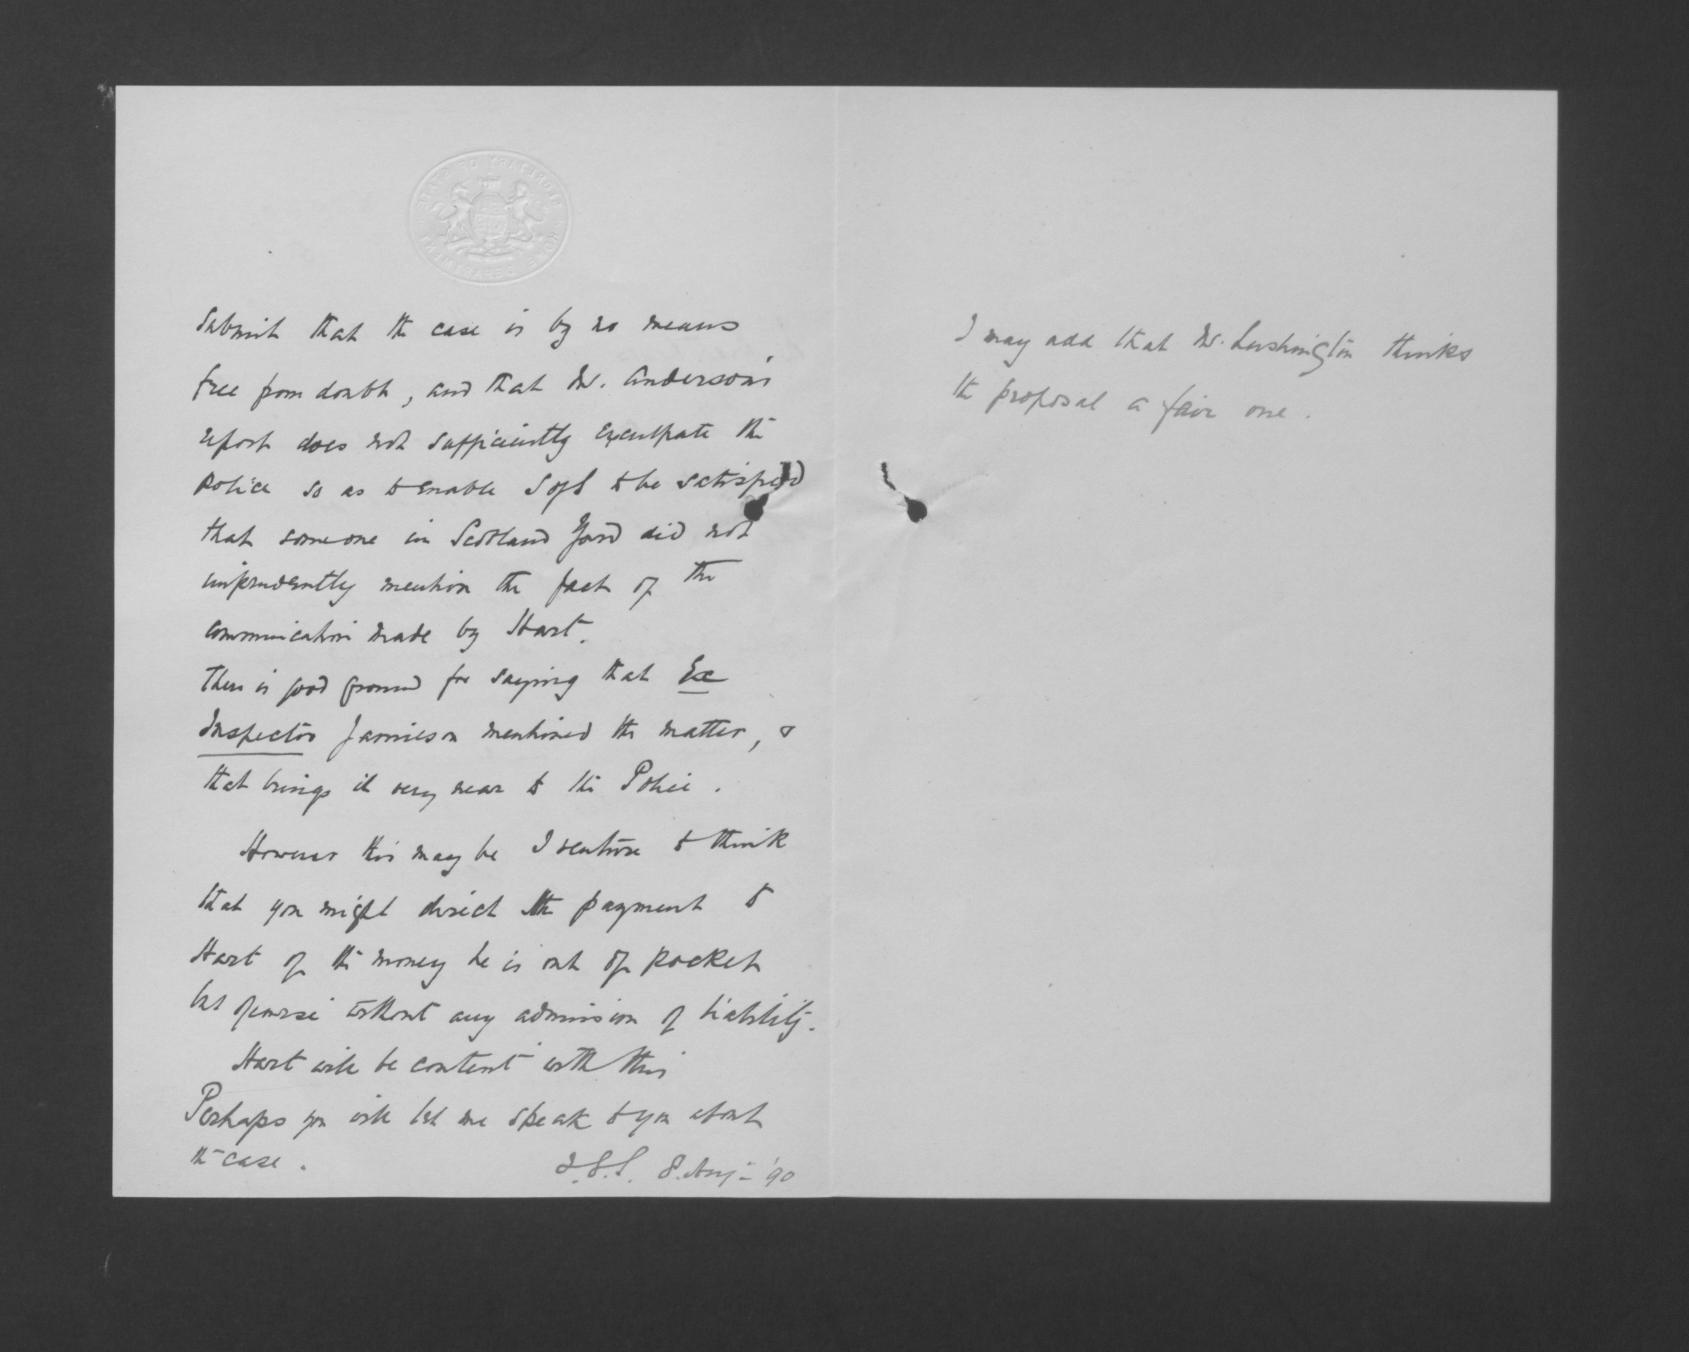 submit that the case is by no means
free from doubt, and that Mr. Anderson's
report does not sufficiently exculpate the
Police so as to enable S of S to be satisfied
that someone in Scotland Yard did not
imprudently mention the fact of the
communication made by Hart.
There is good ground for saying that Ex
Inspector Jamieson mentioned the matter, &
that brings it very near to the Police.
However this may be I venture to think
that you might direct the payment to
Hart of the money he is out of pocket
but of course without any admission of liability.
Hart will be content with this
Perhaps you will let me speak to you about
the case.
8. Aug '90
I may add that Mr. Lushington thinks
the proposal a fair one.